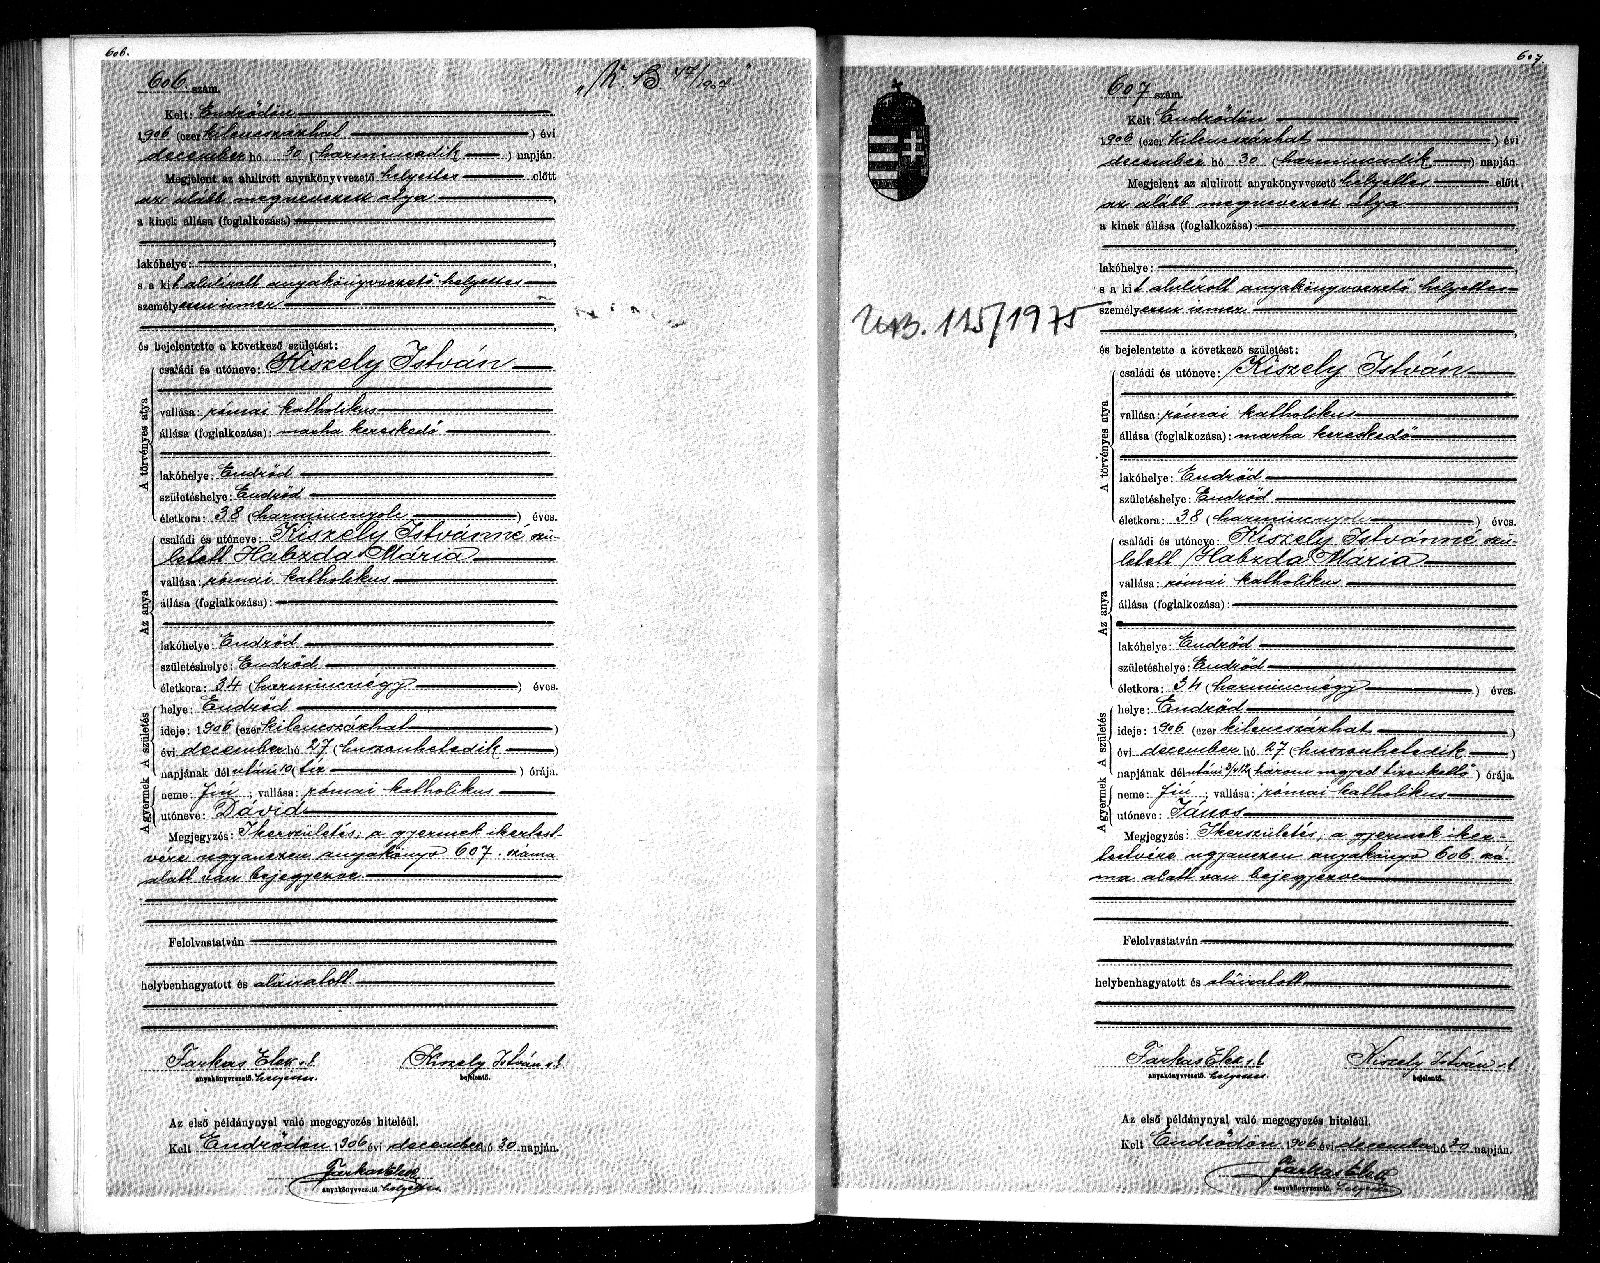 606.
606 szám.
Kelt: Endrődön
1906 (ezer kilencszázhat) évi
december hó 30 (harmincadik) napján.
Megjelent az alulirott anyakönyvvezető helyettes előtt
az alább megnevezett atya,
a kinek állása (foglalkozása)
lakóhelye:
s a kit alulírott anyakönyvvezető helyettes
személyesen ismer
és bejelentette a következő születést:
A törvényes atya
családi és utóneve: Kiszely István
vallása: római katholikus
állása (foglalkozása): marha kereskedő
lakóhelye: Endrőd
születéshelye: Endrőd
életkora: 38 (harmincnyolc) éves.
Az anya
családi és utóneve: Kiszely Istvánné szü-
letett Habzda Mária
vallása: római katholikus
állása (foglalkozása):
lakóhelye: Endrőd
születéshelye: Endrőd
életkora: 34 (harmincnégy) éves.
A gyermek A születés
helye: Endrőd
ideje: 1906 (ezer kilencszázhat)
évi december hó 27 (huszonhetedik)
napjának délutáni 10 (tíz) órája.
neme: fiú; vallása: római katholikus
utóneve: Dávid
Megjegyzés: Ikerszületés; a gyermek ikertest-
vére ugyanezen anyakönyv 607. száma
alatt van bejegyezve
Felolvastatván
helybenhagyatott és aláiratott.
Farkas Elek s.k. Kiszely István s.k.
anyakönyvvezető. helyettes. bejelentő.
Az első példánynyal való megegyezés hiteléül.
Kelt Endrődön 1906 évi december hó 30 napján.
Farkas Elek
anyakönyvvezető. helyettes
115/1975
607.
607 szám.
Kelt Endrődön
1906 (ezer kilencszázhat) évi
december hó 30 (harmincadik) napján.
Megjelent az alulirott anyakönyvvezető helyettes előtt,
az alább megnevezett atya,
a kinek állása (foglalkozása):
lakóhelye:
s a kit alulírott anyakönyvvezető helyettes
személyesen ismer
és bejelentette a következő születést:
A törvényes atya
családi és utóneve: Kiszely István
vallása: római katholikus
állása (foglalkozása): marha kereskedő
lakóhelye: Endrőd
születéshelye: Endrőd
életkora: 38 (harmincnyolc) éves.
Az anya
családi és utóneve: Kiszely Istvánné szü-
letett Habzda Mária
vallása: római katholikus
állása (foglalkozása):
lakóhelye: Endrőd
születéshelye: Endrőd
életkora: 34 (harmincnégy) éves.
A gyermek A születés
helye: Endrőd
ideje: 1906 (ezer kilencszázhat)
évi december hó 27 (huszonhetedik)
napjának délutáni 3/4 12 (három negyed tizenkettő) órája.
neme: fiú; vallása: római katholikus
utóneve: János
Megjegyzés: Ikerszületés; a gyermek iker-
testvére ugyanezen anyakönyv 606 szá-
ma alatt van bejegyezve
Felolvastatván
helybenhagyatott és aláiratott
Farkas Elek s.k. Kiszely István s.k.
anyakönyvvezető. helyettes. bejelentő.
Az első példánynyal való megegyezés hiteléül.
Kelt Endrődön 1906 évi december hó 30 napján.
Farkas Elek
anyakönyvvezető. helyettes